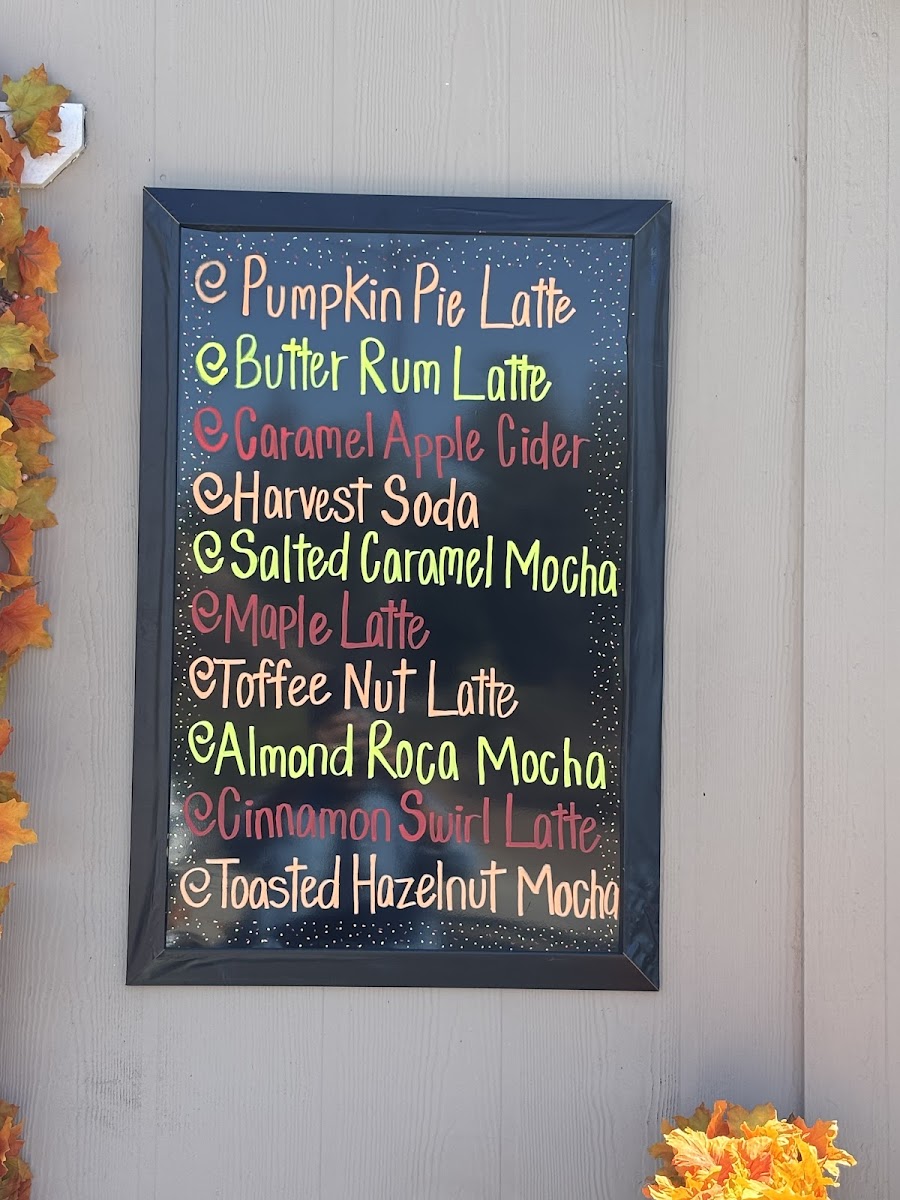 Pumpkin Pie Latte
Butter Rum Latte
Caramel Apple Cider
Harvest Soda
Salted Caramel Mocha
Maple Latte
Toffee Nut Latte
Almond Roca Mocha
Cinnamon Swirl Latte
Toasted Hazelnut Mocha